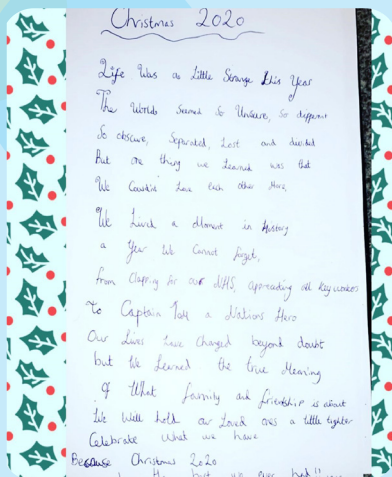 Christmas 2020
Life Was a Little Strange this Year
The World Seemed So Unsure, So different
So obscure, Separated, Lost and divided
But one thing we learned was that
We Couldn't Love each other More,
We Lived a Moment in History
a Year We Cannot forget,
from Clapping for our NHS, appreciating all Key workers
To Captain Tom a Nations Hero
Our Lives have Changed beyond doubt
but We Learned the true Meaning
of What family and friendship is about
We Will hold our Loved ones a little tighter
Celebrate what we have
Because Christmas 2020